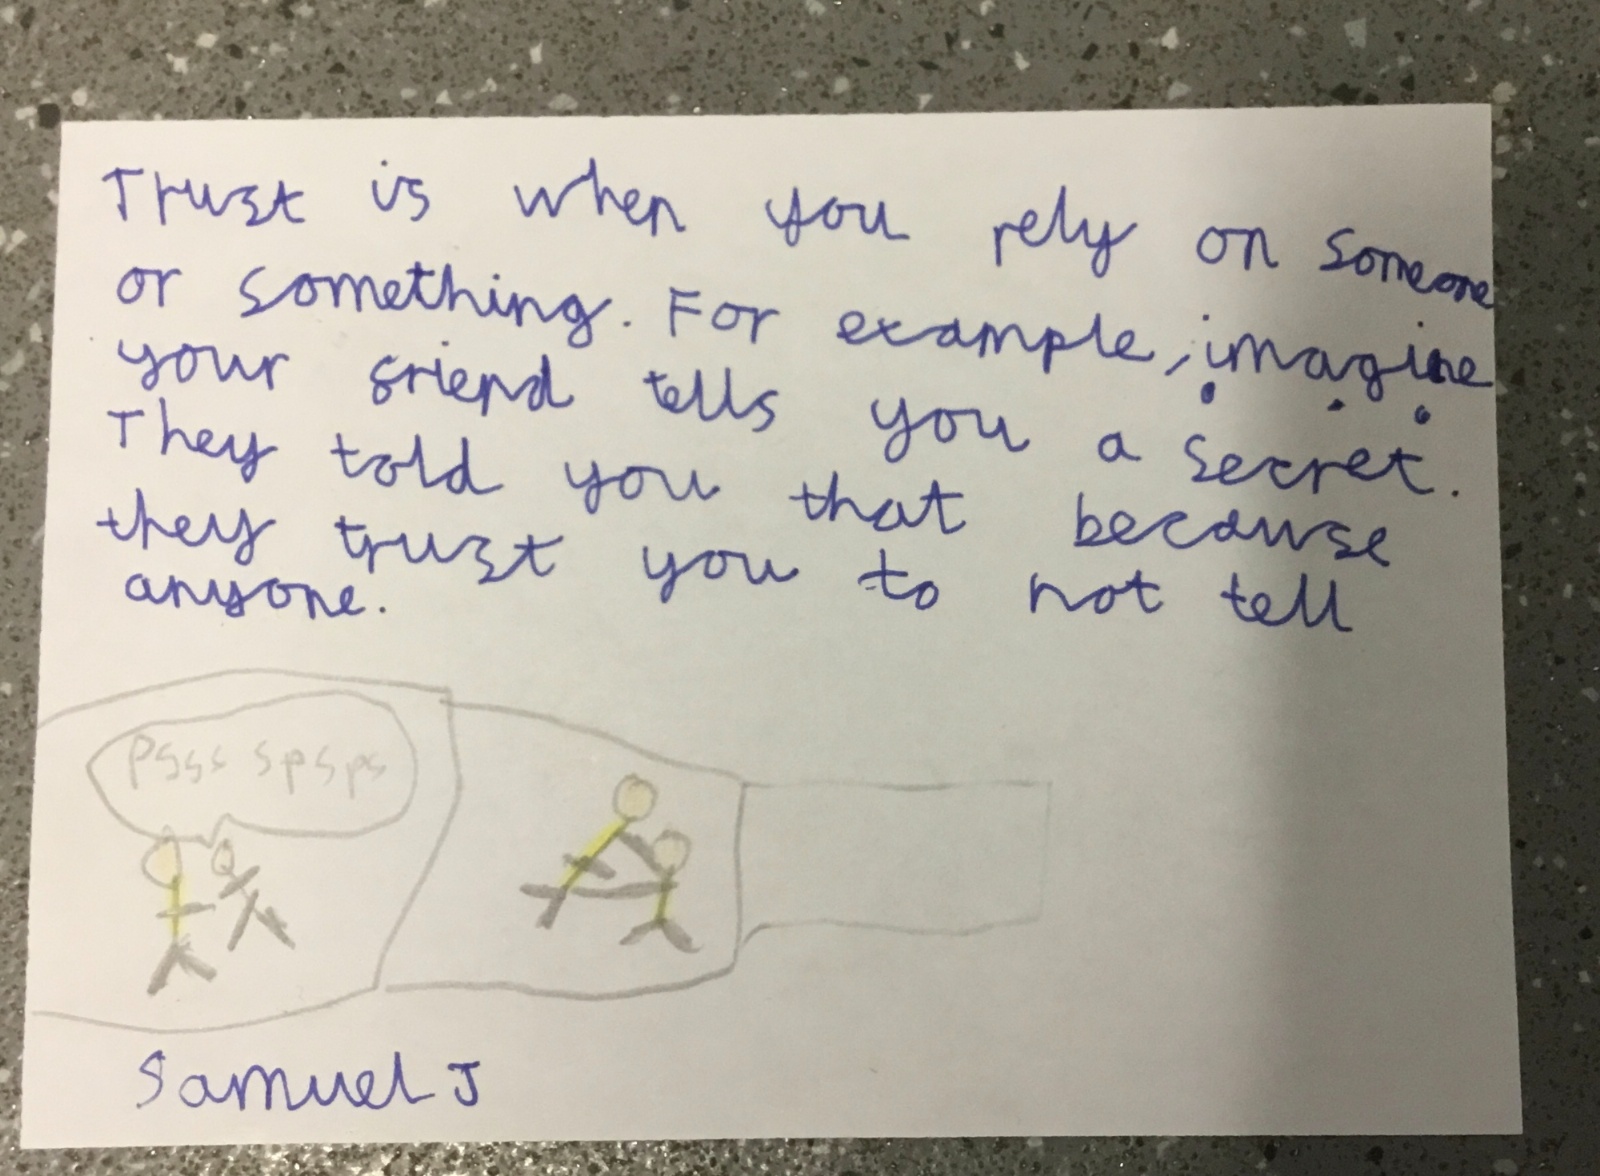 Trust is when you rely on someone
or something. For example, imagine
your friend tells you a secret.
They told you that because
they trust you to not tell
anyone.
Psss spsps
Samuel J